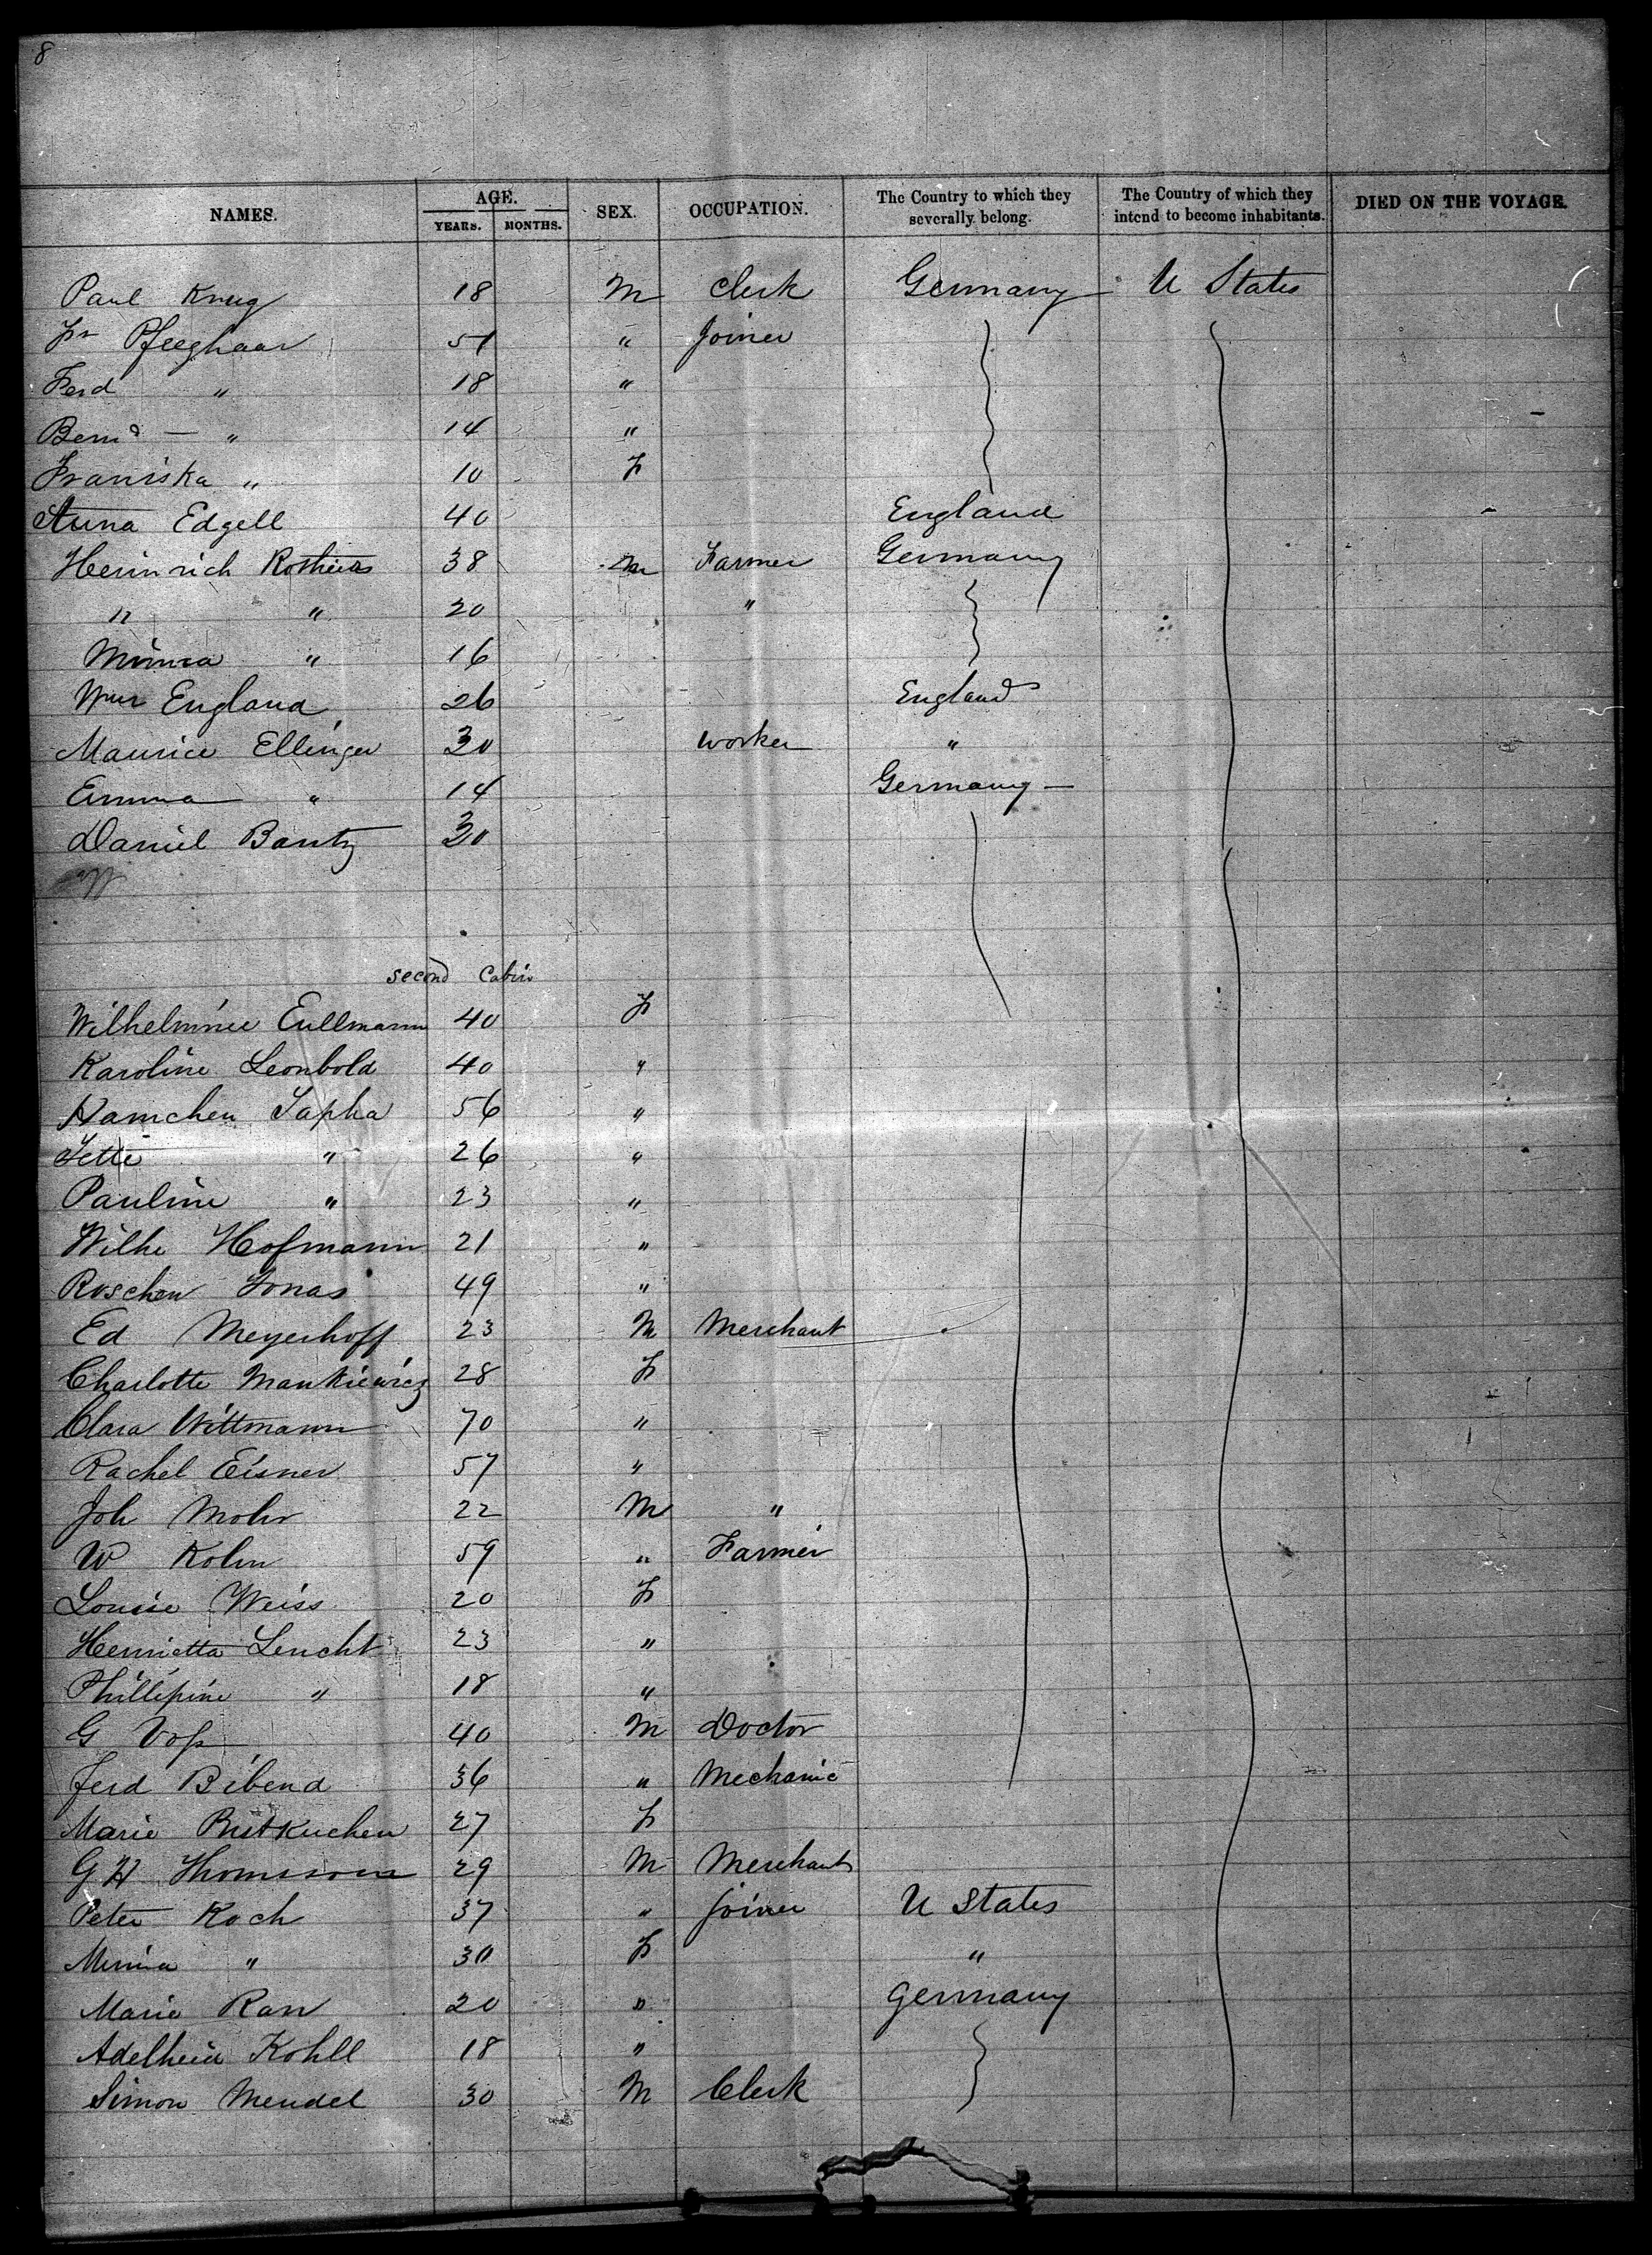 8
NAMES. AGE. YEARS. MONTHS. SEX. OCCUPATION. The Country to which they severally belong. The Country of which they intend to become inhabitants. DIED ON THE VOYAGE.
Paul Krug 18 M Clerk Germany U States
Fr Pfleghaar 51 " Joiner
Ferd " 18 "
Bernd — " 14 "
Franiska " 10 F
Anna Edgell 40 England
Heinrich 38 M Farmer Germany
" " 20 "
Minna " 16
Wm England 26 England
Maurice Ellinger 30 worker "
Emma " 14 Germany —
Daniel Bantz 30
second Cabin
Wilhelmine Eullmann 40 F
Karoline Leonbold 40 "
Hamchen Sapha 56 "
Jette " 26 "
Pauline " 23 "
Wilhe Hofmann 21 "
Roschen Jonas 49 "
Ed Meyerhoff 23 M Merchant
Charlotte Mankiewicz 28 F
Clara Wittmann 70 "
Rachel Eisner 57 "
Joh Mohr 22 M "
W Kohn 59 " Farmer
Louise Weiss 20 F
Henrietta Leucht 23 "
Phillipine " 18 "
G Voß 40 M Doctor
Ferd Bibend 36 " Mechanic
Marie 27 F
G H Thomssone 29 M Merchant
Peter Koch 37 " joiner U States
Minna " 30 F "
Marie Rau 20 " Germany
Adelheid Kohll 18 "
Simon Mendel 30 M Clerk